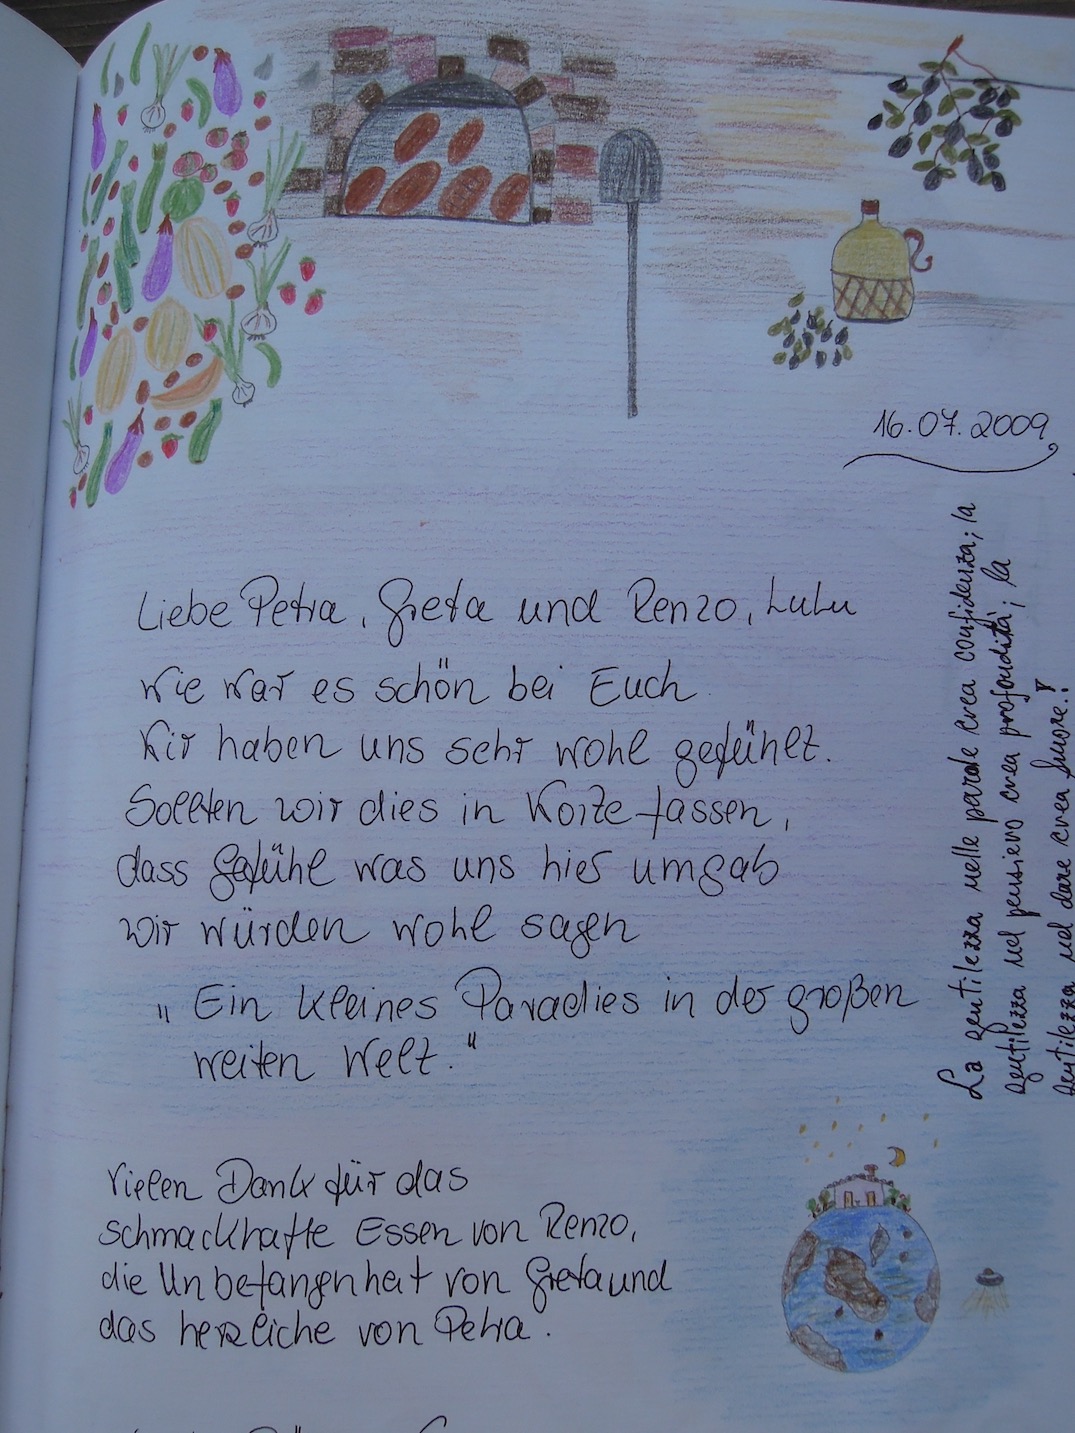 16.07.2009
Liebe Petra, Greta und Renzo, LuLu
Wie war es schön bei Euch.
Wir haben uns sehr wohl gefühlt.
Sollten wir dies in Worte fassen,
dass Gefühl was uns hier umgab
wir würden wohl sagen
„Ein kleines Paradies in der großen
weiten Welt."
Vielen Dank für das
schmackhafte Essen von Renzo,
die Unbefangenheit von Greta und
das herzliche von Petra.
La gentilezza nelle parole crea confidenza; la
gentilezza nel pensiero crea profondità; la
gentilezza nel dare crea Amore!